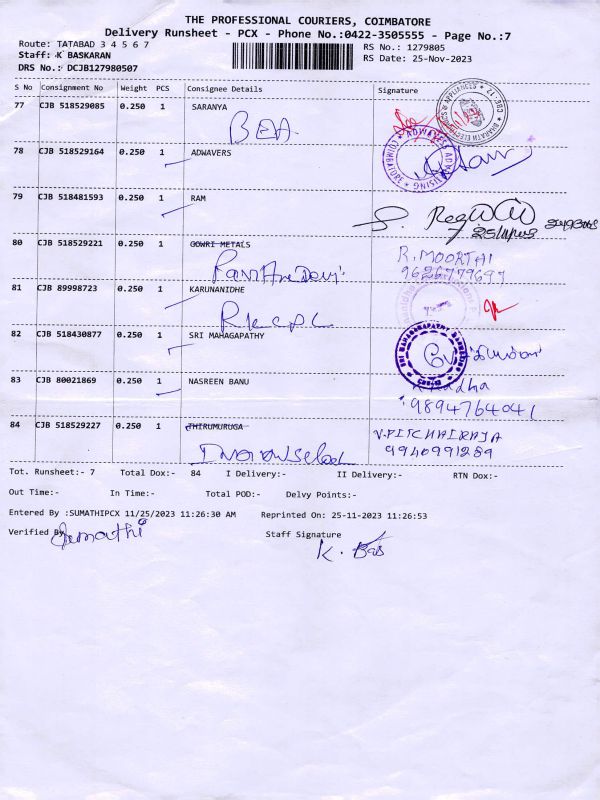 THE PROFESSIONAL COURIERS, COIMBATORE
Delivery Runsheet - PCX - Phone No.:0422-3505555 - Page No.:7
Route: TATABAD 3 4 5 6 7 RS No.: 1279805
Staff: K BASKARAN RS Date: 25-Nov-2023
DRS No.: DCJB127980507
S No Consignment No Weight PCS Consignee Details Signature
77 CJB 518529085 0.250 1 SARANYA
BEA
78 CJB 518529164 0.250 1 ADWAVERS
ADWAVES ADVERTISING COIMBATORE
79 CJB 518481593 0.250 1 RAM
80 CJB 518529221 0.250 1 GOWRI METALS R. MOORTHI
9626779697
81 CJB 89998723 0.250 1 KARUNANIDHE
82 CJB 518430877 0.250 1 SRI MAHAGAPATHY
83 CJB 80021869 0.250 1 NASREEN BANU Radha
9894764041
84 CJB 518529227 0.250 1 THIRUMURUGA V.PITCHAIRAJA
9940991289
Tot. Runsheet:- 7 Total Dox:- 84 I Delivery:- II Delivery:- RTN Dox:-
Out Time:- In Time:- Total POD:- Delvy Points:-
Entered By :SUMATHIPCX 11/25/2023 11:26:30 AM Reprinted On: 25-11-2023 11:26:53
Verified By Sumathi Staff Signature
K. Bas